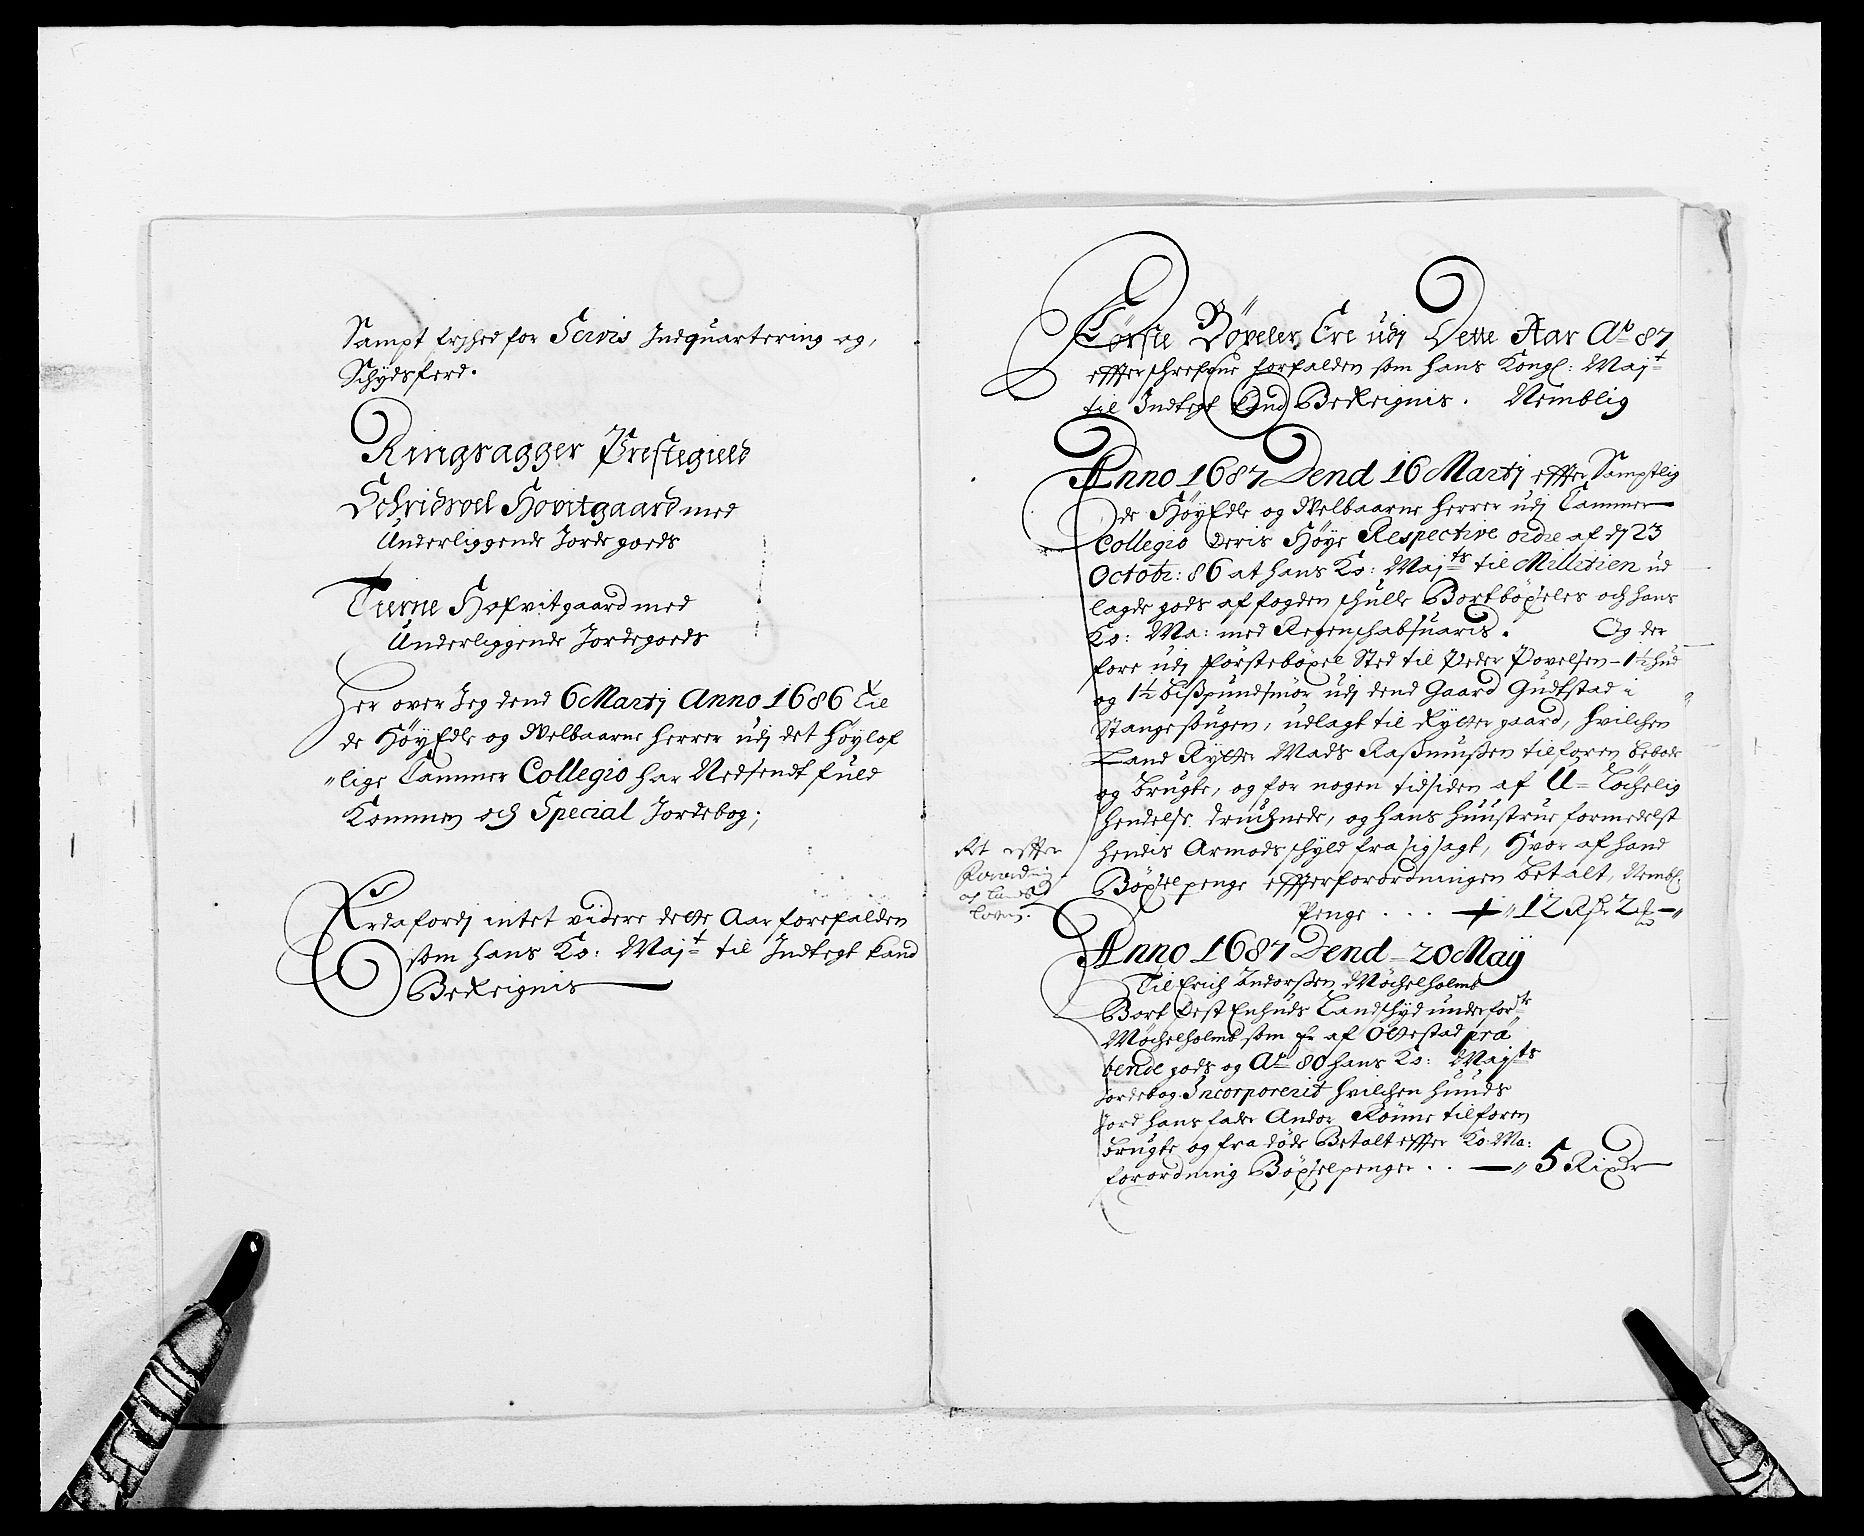 Sampt frihed for Servis Indquartering og,
Schydsferd.
Ringsagger Prestegield
Schridsvel Hovitgaard med
Underliggende Jorde goeds
Tierne Hofvitgaard med
Underliggende Jordegoeds
Her over Jeg dend 6 Martj Anno 1686 til
de HøyEdle og Welbaarne Herrer udj det høylof
"lige Cammer Collegio har Nedsendt fuld
Kommen och Special Jordebog;
Er dafordj intet videre dette Aar forefalden
som hans Ko: Majt til Indtegt kand
BeReignis
Første Bøxeler, Ere udj Dette Aar Ao 87
effterschrefne forfalden som hans Kongl: Majt
til Indtegt kand BeReignis. Nemblig
Anno 1687 Dend 16 Martj effter Samptlig
de HøyEdle og Welbaarne Herrer udj Cammer
Collegio deris Høye Respective ordre af d 23
Octobr: 86 at hans Ko: Majts til Millitien ud
lagde gods af fogden schulle Bortbøxles och hans
Ko: Ma: med Regenschabs uaris. Og der
fore udj førstebøxel Sted til Peder Povelsen 1½ hud
og 1½ bispund smør udj dend Gaard Gudestad i
Stange sougen, udlagt til Rytter gaard, hvilchen
Land Rytter Mads Rasmussen tilforen beboede
og brugte, og for nogen tid siden af U=Lychelig
hendelse druchnede, og hans Huustrue formedelst
hendis Armods schyld fra sig sagt, Hvor af hand
Bøxelpenge effter forordningen betalt, Nembl:
Penge . . . 12 Rdr 2
At effter
Forordning
og Lands
loven.
Anno 1687 Dend 20 May
Til Erich Andersen Møchelholmb
Bort fest Enhuds Landschyd under ford
Møchelholmb som Er af Øttestad præ
bende gods og Ao 80 hans Ko: Majts
Jordebog Incorporerit hvilchen huuds
Jord hans fader Ander Rønne tilforen
brugte og fra døde Betalt effter Ko: Ma:
forordning Bøxelpenger . . 5 Rixdr